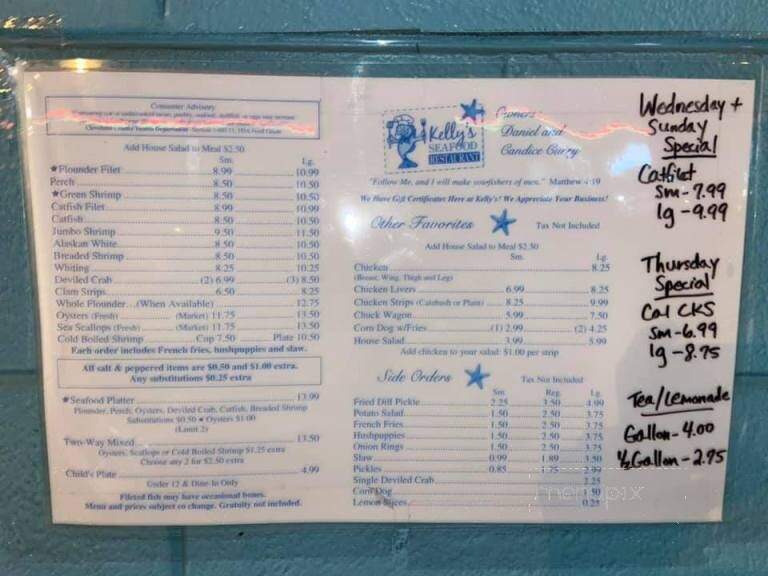 Consumer Advisory
Add House Salad to Meal $2.50
Sm. Lg.
★Flounder Filet 8.99 10.99
Perch 8.50 10.50
★Green Shrimp 8.50 10.50
Catfish Filet 8.99 10.99
Catfish 8.50 10.50
Jumbo Shrimp 9.50 11.50
Alaskan White 8.50 10.50
Breaded Shrimp 8.50 10.50
Whiting 8.25 10.25
Deviled Crab (2) 6.99 (3) 8.50
Clam Strips 6.50 8.25
Whole Flounder...(When Available) 12.75
Oysters (Fresh) (Market) 11.75 13.50
Sea Scallops (Fresh) (Market) 11.75 13.50
Cold Boiled Shrimp Cup 7.50 Plate 10.50
Each order includes French fries, hushpuppies and slaw.
All salt & peppered items are $0.50 and $1.00 extra.
Any substitutions $0.25 extra
★Seafood Platter 13.99
Flounder, Perch, Oysters, Deviled Crab, Catfish, Breaded Shrimp
Substitutions $0.50 ★ Oysters $1.00
(Limit 2)
Two-Way Mixed 13.50
Oysters, Scallops or Cold Boiled Shrimp $1.25 extra
Choose any 2 for $2.50 extra
Child's Plate 4.99
Under 12 & Dine-In Only
Fileted fish may have occasional bones.
Menu and prices subject to change. Gratuity not included.
Kelly's
SEAFOOD
RESTAURANT
Owners
Daniel and
Candice Curry
"Follow Me, and I will make you fishers of men." Matthew 4:19
We Have Gift Certificates Here at Kelly's! We Appreciate Your Business!
Other Favorites Tax Not Included
Add House Salad to Meal $2.50
Sm. Lg.
Chicken 8.25
(Breast, Wing, Thigh and Leg)
Chicken Livers 6.99 8.25
Chicken Strips (Calabash or Plain) 8.25 9.99
Chuck Wagon 5.99 7.50
Corn Dog w/Fries (1) 2.99 (2) 4.25
House Salad 3.99 5.99
Add chicken to your salad: $1.00 per strip
Side Orders Tax Not Included
Sm. Reg. Lg.
Fried Dill Pickle 2.25 3.50 4.99
Potato Salad 1.50 2.50 3.75
French Fries 1.50 2.50 3.75
Hushpuppies 1.50 2.50 3.75
Onion Rings 1.50 2.50 3.75
Slaw 0.99 1.89 3.50
Pickles 0.85 1.75 2.99
Single Deviled Crab 2.25
Corn Dog 1.50
Lemon Slices 0.25
Wednesday +
Sunday
Special
Catfilet
sm-7.99
lg-9.99
Thursday
Special
Cal CKS
sm-6.99
lg-8.75
Tea/Lemonade
Gallon-4.00
½Gallon-2.75
menupix